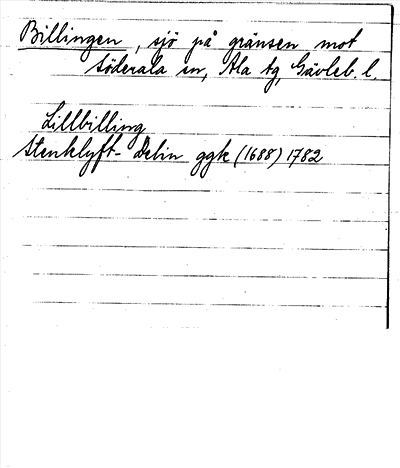 Billingen, sjö på gränsen mot
Söderala sn, Ala tg, Gävleb. l.
Lillbilling
Stenklyft- Delin ggk (1688) 1782